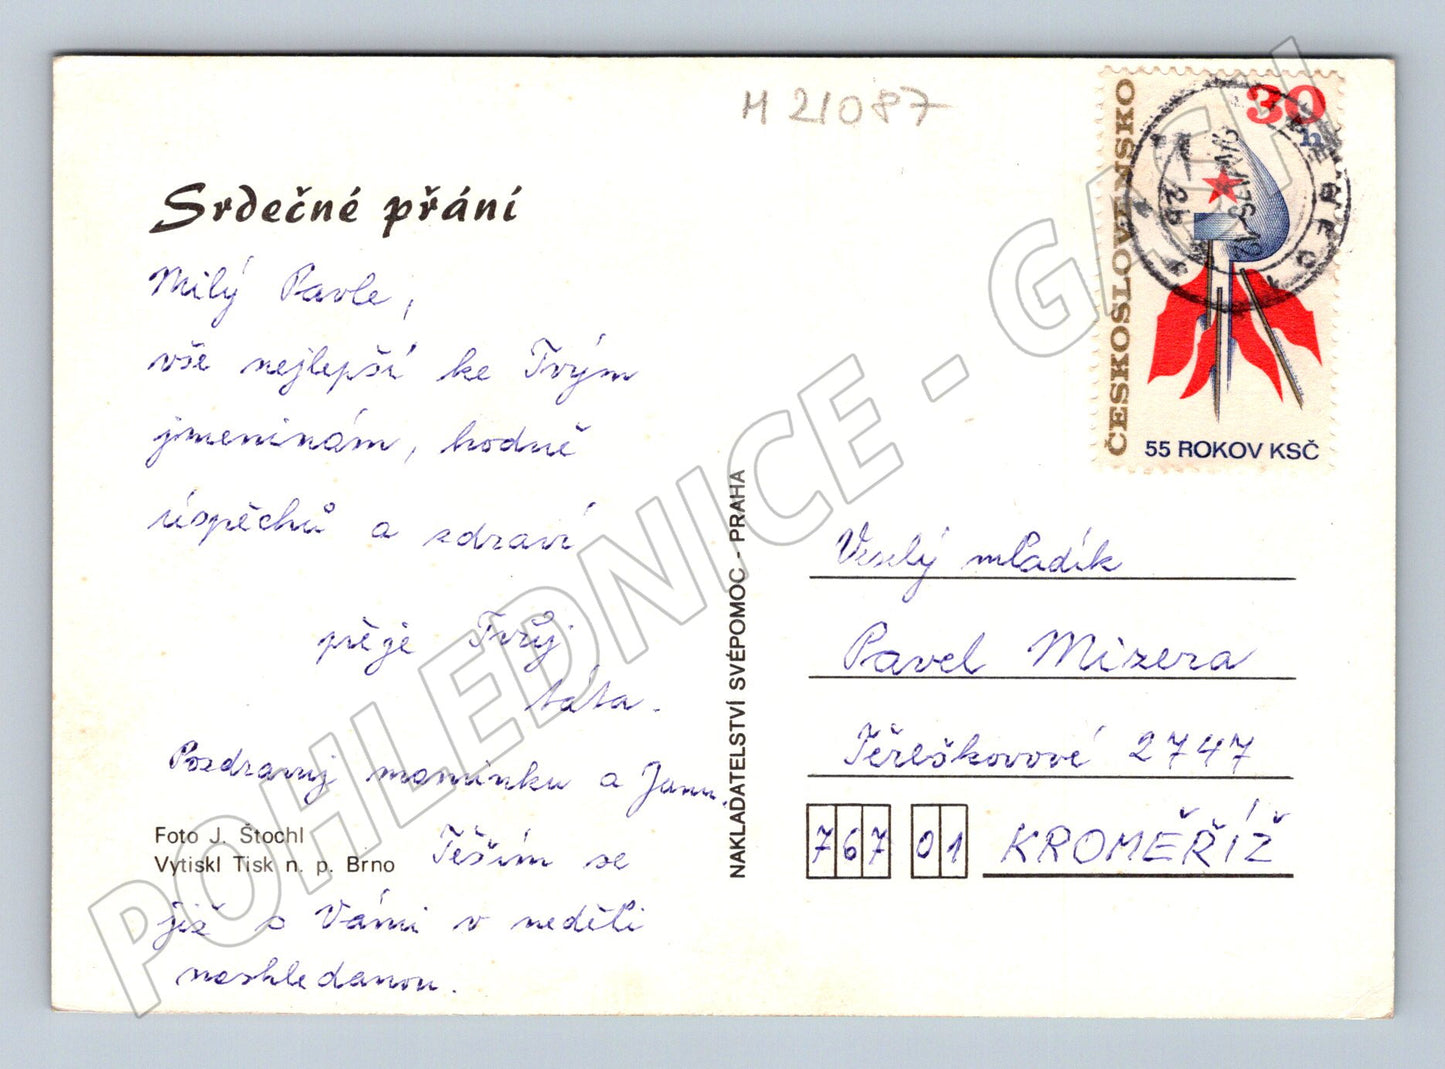 M 21087
Srdečné přání
Milý Pavle,
vše nejlepší ke Tvým
jmeninám, hodně
úspěchů a zdraví
přeje Tvůj
táta.
Pozdravuj maminku a Janu.
Foto J. Štochl
Vytiskl Tisk n. p. Brno
Těším se
již s Vámi v neděli
nashledanou.
NAKLADATELSTVÍ SVÉPOMOC - PRAHA
ČESKOSLOVENSKO
30
h
55 ROKOV KSČ
Veselý mládík
Pavel Mizera
Těreškovové 2747
767 01 KROMĚŘÍŽ
POHLEDNICE - GASH